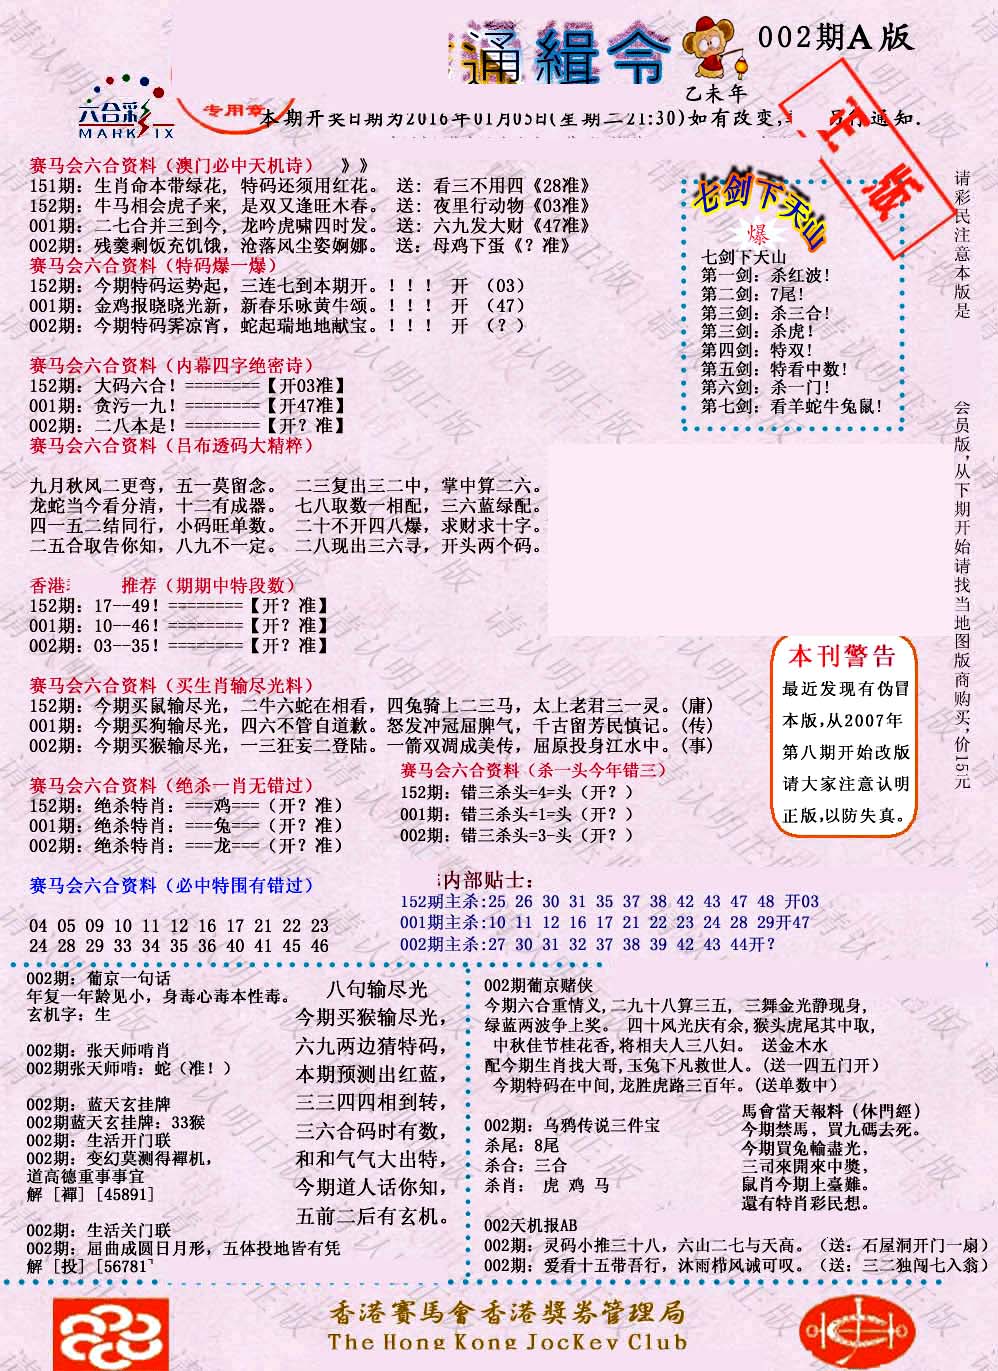 通緝令
002期A版
乙未年
六合彩
MARK SIX
专用章
本期开奖日期为2016年01月05日(星期二21:30)如有改变,
通知.
赛马会六合资料（澳门必中天机诗） 》》
151期: 生肖命本带绿花, 特码还须用红花。 送: 看三不用四《28准》
152期: 牛马相会虎子来, 是双又逢旺木春。 送: 夜里行动物《03准》
001期: 二七合并三到今, 龙吟虎啸四时发。 送: 六九发大财《47准》
002期: 残羹剩饭充饥饿, 沧落风尘姿婀娜。 送: 母鸡下蛋《？准》
赛马会六合资料（特码爆一爆）
152期: 今期特码运势起, 三连七到本期开。！！！ 开 （03）
001期: 金鸡报晓晓光新, 新春乐咏黄牛颂。！！！ 开 （47）
002期: 今期特码霁凉宵, 蛇起瑞地地献宝。！！！ 开 （？）
赛马会六合资料（内幕四字绝密诗）
152期: 大码六合！========【开03准】
001期: 贪污一九！========【开47准】
002期: 二八本是！========【开？准】
赛马会六合资料（吕布透码大精粹）
九月秋风二更弯, 五一莫留念。 二三复出三二中, 掌中算二六。
龙蛇当今看分清, 十二有成器。 七八取数一相配, 三六蓝绿配。
四一五二结同行, 小码旺单数。 二十不开四八爆, 求财求十字。
二五合取告你知, 八九不一定。 二八现出三六寻, 开头两个码。
香港 推荐（期期中特段数）
152期: 17--49！========【开？准】
001期: 10--46！========【开？准】
002期: 03--35！========【开？准】
赛马会六合资料（买生肖输尽光料）
152期: 今期买鼠输尽光, 二牛六蛇在相看, 四兔骑上二三马, 太上老君三一灵。(庸)
001期: 今期买狗输尽光, 四六不管自道歉。怒发冲冠屈脾气, 千古留芳民慎记。(传)
002期: 今期买猴输尽光, 一三狂妄二登陆。一箭双凋成美传, 屈原投身江水中。(事)
赛马会六合资料（绝杀一肖无错过）
152期: 绝杀特肖: ===鸡===（开？准）
001期: 绝杀特肖: ===兔===（开？准）
002期: 绝杀特肖: ===龙===（开？准）
赛马会六合资料（杀一头今年错三）
152期: 错三杀头=4=头（开？）
001期: 错三杀头=1=头（开？）
002期: 错三杀头=3-头（开？）
赛马会六合资料（必中特围有错过）
04 05 09 10 11 12 16 17 21 22 23
24 28 29 33 34 35 36 40 41 45 46
内部贴士:
152期主杀:25 26 30 31 35 37 38 42 43 47 48 开03
001期主杀:10 11 12 16 17 21 22 23 24 28 29开47
002期主杀:27 30 31 32 37 38 39 42 43 44开？
七剑下天山
爆
七剑下天山
第一剑: 杀红波!
第二剑: 7尾!
第三剑: 杀三合!
第三剑: 杀虎!
第四剑: 特双!
第五剑: 特看中数!
第六剑: 杀一门!
第七剑: 看羊蛇牛兔鼠!
请彩民注意本版是
会员版,从下期开始请找当地图版商购买,价15元
本刊警告
最近发现有伪冒
本版,从2007年
第八期开始改版
请大家注意认明
正版,以防失真。
002期: 葡京一句话
年复一年龄见小, 身毒心毒本性毒。
玄机字: 生
002期: 张天师啃肖
002期张天师啃: 蛇（准！）
002期: 蓝天玄挂牌
002期蓝天玄挂牌: 33猴
002期: 生活开门联
002期: 变幻莫测得禪机,
道高德重事事宜
解 [禪] [45891]
002期: 生活关门联
002期: 屈曲成圆日月形, 五体投地皆有凭
解 [投] [56781
八句输尽光
今期买猴输尽光,
六九两边猜特码,
本期预测出红蓝,
三三四四相到转,
三六合码时有数,
和和气气大出特,
今期道人话你知,
五前二后有玄机。
002期葡京赌侠
今期六合重情义,二九十八算三五, 三舞金光静现身,
绿蓝两波争上奖。 四十风光庆有余,猴头虎尾其中取,
中秋佳节桂花香,将相夫人三八妇。 送金木水
配今期生肖找大哥,玉兔下凡救世人。(送一四五门开)
今期特码在中间,龙胜虎路三百年。(送单数中)
002期: 乌鸦传说三件宝
杀尾: 8尾
杀合: 三合
杀肖: 虎 鸡 马
馬會當天報料（休門經）
今期禁馬, 買九碼去死。
今期買兔輸盡光,
三司來開來中獎,
鼠肖今期上臺難。
還有特肖彩民想。
002天机报AB
002期: 灵码小推三十八, 六山二七与天高。（送: 石屋洞开门一扇）
002期: 爱看十五带吾行, 沐雨栉风诚可叹。（送: 三二独闯七入翁）
香港賽馬會香港獎券管理局
The Hong Kong Jockey Club